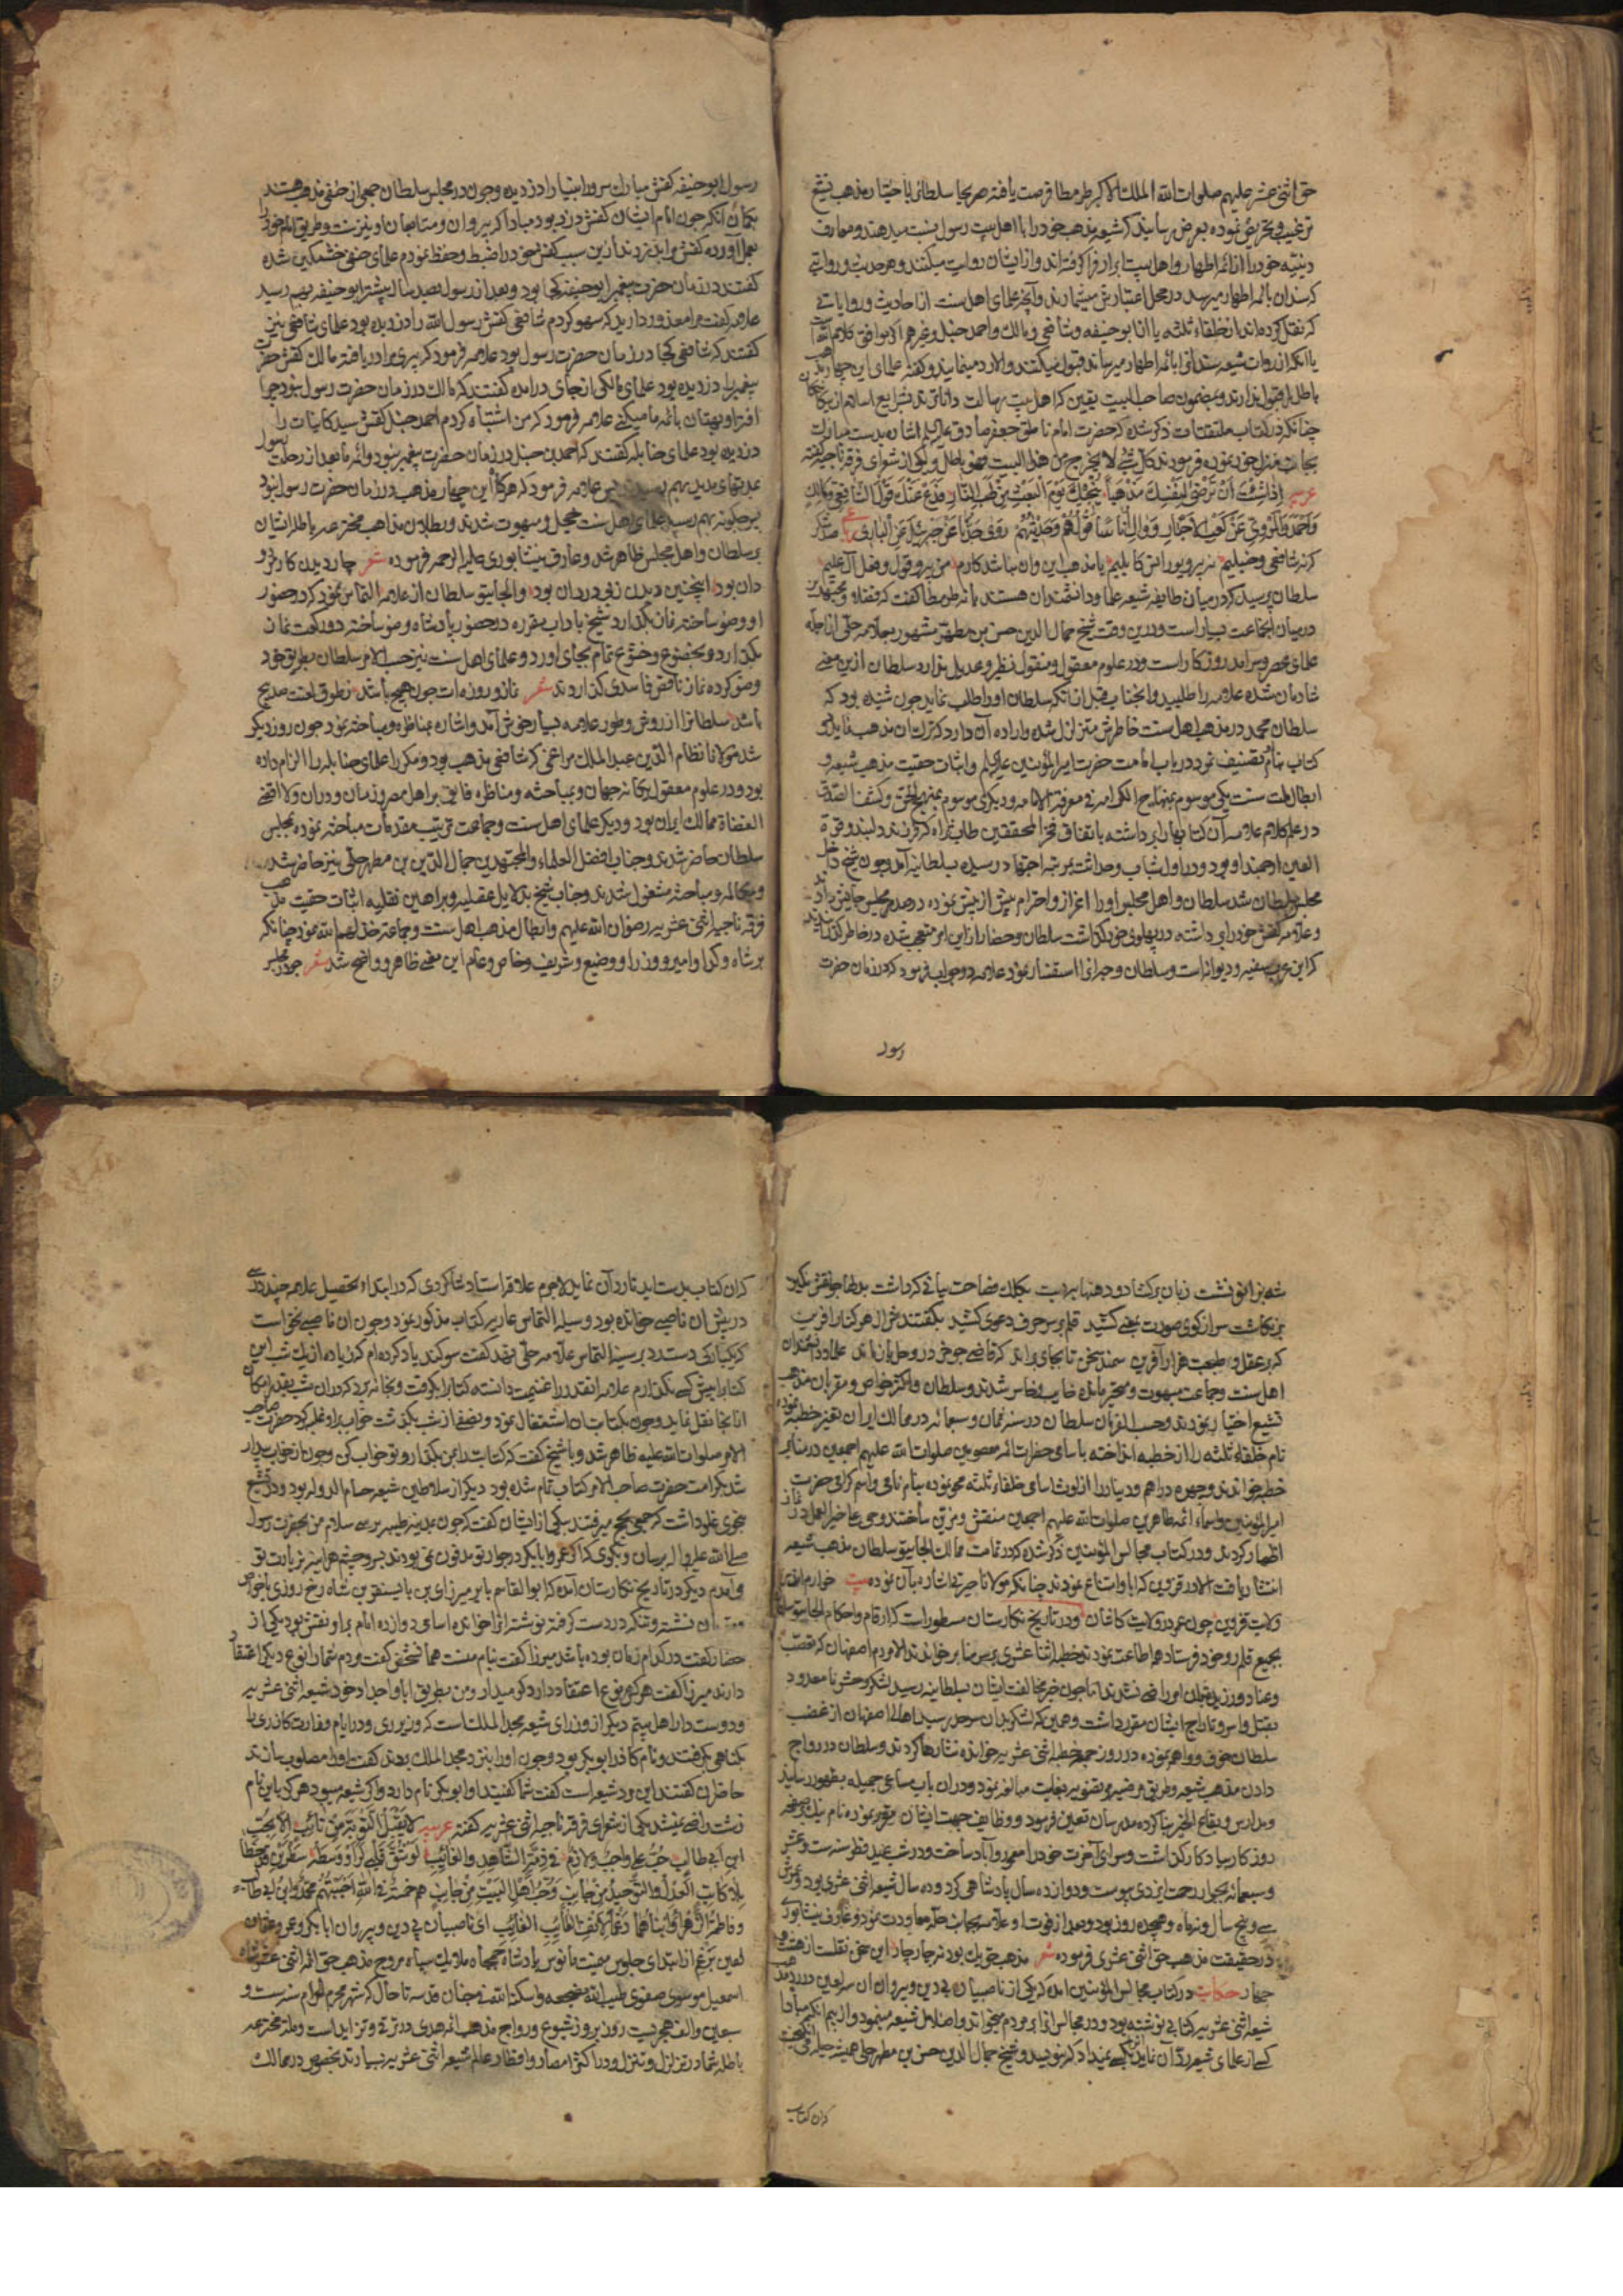 حق اثنی عشر علیهم صلوات الله الملک الاکبر طرمطا فرصت یافته صریحا سلطان را باختیار مذهب تشیع
ترغیب و تحریض نموده بعرض رسانید که شیعه مذهب خود را با اهل بیت رسول نسبت میدهند و معارف
دینیه خود را از ائمه اطهار و اهل بیت ابرار فرا گرفته اند و از ایشان روایت میکنند و هر حدیث و روایتی
که سند آن بائمه اطهار میرسد در محل اعتبارش میشمارند و آنچه علمای اهل سنت از احادیث و روایاتی
که نقل کرده اند از خلفاء ثلثه یا از ابو حنیفه و شافعی و مالک و احمد حنبل و غیرهم اگر موافق کلام الله است
یا آنکه از روات شیعه سند آنرا بائمه اطهار میرسانند قبول میکنند و الا رد مینمایند و گفته علمای این چهار مذهب
باطل را قبول ندارند و بمضمون صاحب البیت یقین که اهل بیت رسالت داناترند بشرایع اسلام از بیگانگان
چنانکه در کتاب ملتقطات ذکر شده که حضرت امام ناطق جعفر صادق علیه السلم اشاره بدست مبارک
بجانب منزل خود نموده فرمودند کل شئ لا یخرج من هذا البیت فهو باطل و یکی از شعرای فرقه ناجیه گفته
عربیه اذا شئت ان ترضی لنفسک مذهبا ینجیک یوم البعث من لهب النار فدع عنک قول الشافعی و مالک
و احمد و المروی عن کعب الاحبار و وال اناسا قولهم و حدیثهم روی جدنا عن جبرئیل عن الباری
که نه شافعی و حنبلیم نه پرو بو رافق کابلییم با مذهب این و آن نباشد کارم من پیرو قول و فعل آل علیم
سلطان پرسید که در میان طایفه شیعه علما و دانشمندان هستند یا نه طرمطا گفت که فضلا و مجتهدین
در میان انجماعت بسیار است و در این وقت شیخ جمال الدین حسن بن مطهر مشهور بعلامه حلی از جمله
علمای عصر و سرامد روزگار است و در علوم معقول و منقول نظیر و عدیل ندارد سلطان ازین معنی
شادمان شده علامه را طلبید و انجناب قبل از آنکه سلطان او را طلب نماید چون شنیده بود که
سلطان محمد در مذهب اهل سنت خاطرش متزلزل شده و اراده آن دارد که ترک آن مذهب نماید دو
کتاب بنام تصنیف نمود در باب امامت حضرت امیرالمؤمنین علیه السلم و اثبات حقیت مذهب شیعه و
ابطال ملت سنت یکی موسوم بمنهاج الکرامه فی معرفة الامامه و دیگری موسوم بمنهج الحق و کشف الصدق
در علم کلام علامه آن کتابها را برداشته باتفاق فخر المحققین طاب ثراه که فرزند دلبند و قرة
العین ارجمند او بود و در اوایل شباب و حداثت بمرتبه اجتهاد رسیده بسلطانیه آمد و چون شیخ داخل
مجلس سلطان شد سلطان و اهل مجلس او را اعزاز و احترام بیش از بیش نموده در صدر مجلس جایش دادند
و علامه کفش خود را برداشته در پهلوی خود گذاشت سلطان و حضار ازین امر متعجب شده در خاطر گذرانیدند
که این عرب سفیه و دیوانه است و سلطان وجه آنرا استفسار نمود علامه در جواب فرمود که در زمان حضرت
رسول
رسول ابو حنیفه کفش مبارک سرور انبیا را دزدیده و چون در مجلس سلطان جمعی از حنفی مذهب هستند
بگمان آنکه چون امام ایشان کفش دزد بود مبادا که پیروان و متابعان او نیز سنت و طریق امام خود را
بعمل آورده کفش مرا بدزدند ازین سبب کفش خود را ضبط و حفظ نمودم علمای حنفی خشمگین شده
گفتند در زمان حضرت پیغمبر ابو حنیفه کجا بود و بعد از رسول بصد سال بیشتر ابو حنیفه بهم رسید
علامه گفت مرا معذور دارید که سهو کردم شافعی کفش رسول الله را دزدیده بود علمای شافعی نیز
گفتند که شافعی کجا در زمان حضرت رسول بود علامه فرمود که پیری مرا دریافته مالک کفش حضرت
پیغمبر را دزدیده بود علمای مالکی از جای درامده گفتند که مالک در زمان حضرت رسول نبود چرا
افترا و بهتان بائمه ما میکنی علامه فرمود که من اشتباه کردم احمد حنبل کفش سید کاینات را
دزدیده بود علمای حنابله گفتند که احمد بن حنبل در زمان حضرت پیغمبر نبود و ائمه ما بعد از رحلت رسول
بمدتهای مدید بهم رسیدند پس علامه فرمود که هرگاه این چهار مذهب در زمان حضرت رسول نبود
پس چگونه بهم رسید علمای اهل سنت خجل و مبهوت شدند و بطلان مذاهب مخترعه باطله ایشان
بر سلطان و اهل مجلس ظاهر شد و عارف نیشابوری علیه الرحمه فرموده شعر چار دیدن کار دزد
دان بود اینچنین دیدن زنی دردان بود و الجایتو سلطان از علامه التماس نمود که در حضور
او وضو ساخته نماز بگذارد شیخ بآداب مقرره در حضور پادشاه وضو ساخته دو رکعت نماز
بگذارد و بخضوع و خشوع تمام بجای آورد و علمای اهل سنت نیز حسب الامر سلطان بطریق خود
وضو کرده نماز ناقص فاسدی گذاردند شعر نماز و روزه ات چون هیچ باشد ز طوق لعنت صد پیچ
باشد سلطانرا از روش و طور علامه بسیار خوش آمد و اشاره بمناظره و مباحثه نمود چون روز دیگر
شد مولانا نظام الدین عبد الملک مراغی که شافعی مذهب بود و مکرر علمای حنابله را الزام داده
بود و در علوم معقول یگانه جهان و بمباحثه و مناظره فایق بر اهل عصر و زمان و دران ولا اقضی
القضاة ممالک ایران بود و دیگر علمای اهل سنت و جماعت ترتیب مقدمات مباحثه نموده بمجلس
سلطان حاضر شدند و جناب افضل العلماء و المجتهدین جمال الدین بن مطهر حلی نیز حاضر شد
و بمکالمه و مباحثه مشغول شدند و جناب شیخ بدلایل عقلیه و براهین نقلیه اثبات حقیت مذهب
فرقه ناجیه اثنی عشریه رضوان الله علیهم و ابطال مذهب اهل سنت و جماعت خذلهم الله نمود چنانکه
بر شاه و گدا و امیر و وزرا و وضیع و شریف و خاص و عام این معنی ظاهر و واضح شد شعر چو در مجلس
شه بزانو نشست زبان برگشاد و دهنها ببست بکلک فصاحت بیانی که داشت بدلها چو نقش نگین
بر نگاشت سر از کوی صورت بمعنی کشید قلم بر سر حرف دعوی کشید بگفتندش از هر کنار آفرین
که بر عقل و طبعت هزار آفرین سمند سخن تا بجایی براند که قاضی چو خر در وحل باز ماند علما و دانشمندان
اهل سنت و جماعت مبهوت و متحیر مانده خایب و خاسر شدند و سلطان و اکثر خواص و مقربان مذهب
تشیع اختیار نمودند و حسب الفرمان سلطان در سنه ثمان و سبعمائه در ممالک ایران تغییر خطبه نموده
نام خلفاء ثلثه را از خطبه انداخته باسامی حضرات ائمه معصومین صلوات الله علیهم اجمعین در منابر
خطبه خواندند و چهره دراهم و دینار را از لوث اسامی خلفاء ثلثه محو نموده بنام نامی و اسم گرامی حضرت
امیرالمؤمنین و اسماء ائمه طاهرین صلوات الله علیهم اجمعین منقش و مزین ساختند و حی علی خیر العمل در نماز
اظهار کردند و در کتاب مجالس المؤمنین ذکر شده که در تمامت ممالک الجایتو سلطان مذهب شیعه
انتشار یافت الا در قزوین که ابا و امتناع نمودند چنانکه مولانا حیرتی اشاره بآن نموده بیت
ولایت قزوین چون عمر در ولایت کاشان و در تاریخ نگارستان مسطور است که ارقام و احکام الجایتو سلطان
بجمیع قلمرو خود فرستاد همه اطاعت نمودند و خطبه اثنا عشری بر سر منابر خواندند الا مردم اصفهان که تعصب
و عناد ورزیده بدان امر راضی نشدند اما چون خبر مخالفت ایشان بسلطانیه رسید لشکر و حشر نامعدود
بقتل و اسر و تاراج ایشان مقرر داشت و همین که لشکر بدان سرحد رسید اهالی اصفهان از غضب
سلطان خوف و واهمه نموده در روز جمعه خطبه اثنی عشریه خوانده نثارها کردند و سلطان در رواج
دادن مذهب شیعه و طریق مرضیه مرتضویه بغایت مبالغه نمود و دران باب مساعی جمیله بظهور رسانید
و مدارس و بقاع الخیر بنا کرده مدرسان تعیین فرمود و وظایف جهت ایشان مقرر نموده نام نیک بر صفحه
روزگار بیادگار گذاشت و سرای آخرت خود را معمور و آباد ساخت و در شب عید فطر سنه ست و عشر
و سبعمائه بجوار رحمت ایزدی پیوست و دوازده سال پادشاهی کرد و ده سال شیعه اثنی عشری بود و عمرش
سی و پنج سال و نه ماه و هجده روز بود و بعد از فوت او علامه بجانب حله معاودت نمود و عارف نیشابوری
در حقیقت مذهب حق اثنی عشری فرموده شعر مذهب حق یک بود نه چار چار این سخن نقلست از هشت و
چهار حکایت در کتاب مجالس المؤمنین آمده که یکی از ناصبیان بی دین و پیروان آن سه لعین در رد مذهب
شیعه اثنی عشریه کتابی نوشته بود و در مجالس آنرا بر مردم میخواند و اضلال شیعه مینمود و از بیم آنکه مبادا
کسی از علمای شیعه رد آن نماید آنرا بکسی نمیداد که بنویسد و شیخ جمال الدین حسن بن مطهر حلی همیشه حیله می انگیخت
که آن کتاب
که آن کتاب بدست آید تا رد آن نماید لاجرم علاقه استاد شاگردی که در ابتداء تحصیل علامه چند درسی
در پیش آن ناصبی خوانده بود وسیله التماس عاریه کتاب مذکور نمود و چون آن ناصبی نخواست
که یکبارگی دست رد بر سینه التماس علامه حلی نهد گفت سوگند یاد کرده ام که زیاده از یک شب این
کتاب را پیش کسی نگذارم علامه انقدر را غنیمت دانسته کتاب را بگرفت و بخانه برد که دران شب بقدر امکان
از انجا نقل نماید و چون بکتابت آن اشتغال نمود و نصفی از شب بگذشت خواب بر او غلبه کرد حضرت صاحب
الامر صلوات الله علیه ظاهر شد و با شیخ گفت که کتابت را بمن بگذار و تو خواب کن و چون از خواب بیدار
شد بکرامت حضرت صاحب الامر کتاب تمام شده بود دیگر از سلاطین شیعه حسام الدوله بود و در تشیع
بنحوی غلو داشت که جمعی بحج میرفتند بیکی از ایشان گفت که چون بمدینه طیبه برسی سلام من بحضرت رسول
صلی الله علیه و اله برسان و بگوی که اگر عمر و ابا بکر در جوار تو مدفون نمی بودند بسر و چشم هر اینه بزیارت تو
می آمدم دیگر در تاریخ نگارستان آمده که ابو القاسم بابر میرزای بن بایسنقر بن شاه رخ روزی با خواص
نشسته و تنگه در دست گرفته نوشته آنرا خوانده اسامی دوازده امام بر او نقش بود یکی از
حضار گفت در کدام زمان بوده باشد میرزا گفت بنام منست همان شخص گفت مردم شما را نوع دیگر اعتقاد
دارند میرزا گفت هر کس هر نوع اعتقاد دارد گو میدار و من بطریق ابا و اجداد خود شیعه اثنی عشریه
و دوست دار اهل بیتم دیگر از وزرای شیعه مجد الملک است که وزیر ری و در ایام وزارت کاذری را
بگناهی بگرفتند و نام کاذر ابو بکر بود و چون او را بنزد مجد الملک بردند گفت او را مصلوب سازند
حاضران گفتند این مرد شیعه است گفت شما گفتید او ابو بکر نام دارد و اگر شیعه میبود هرگز باین نام
زشت راضی نمیشد یکی از شعرای فرقه ناجیه اثنی عشریه گفته عربیه لا یقبل التوبة من تائب الا بحب
ابن ابی طالب حب علی واجب لازم فی ذمة الشاهد و الغائب لو شق قلبی لرأوا وسطه سطرین قد خطا
بلا کاتب العدل و التوحید من جانب و حب اهل البیت من جانب هم خمسة و الله احببتهم محمد و ابن ابی طالب
و فاطمة الزهراء و ابناهما
لعین برغم از ابتدای جلوس میمنت مانوس پادشاه جمجاه ملایک سپاه مروج مذهب حق ائمه اثنی عشر شاه
اسمعیل موسوی صفوی طیب الله مضجعه و اسکنه الله فی جنان قدسه تا حال که شهر محرم الحرام سنه ست و
سبعین و الف هجریست روز بروز شیوع و رواج مذهب ائمه هدی در ترقی و تزاید است و ملة مخترعه
باطله شما در تزلزل و تنزل و در اکثر امصار و اقطار عالم شیعه اثنی عشریه بسیارند بتخصیص در ممالک